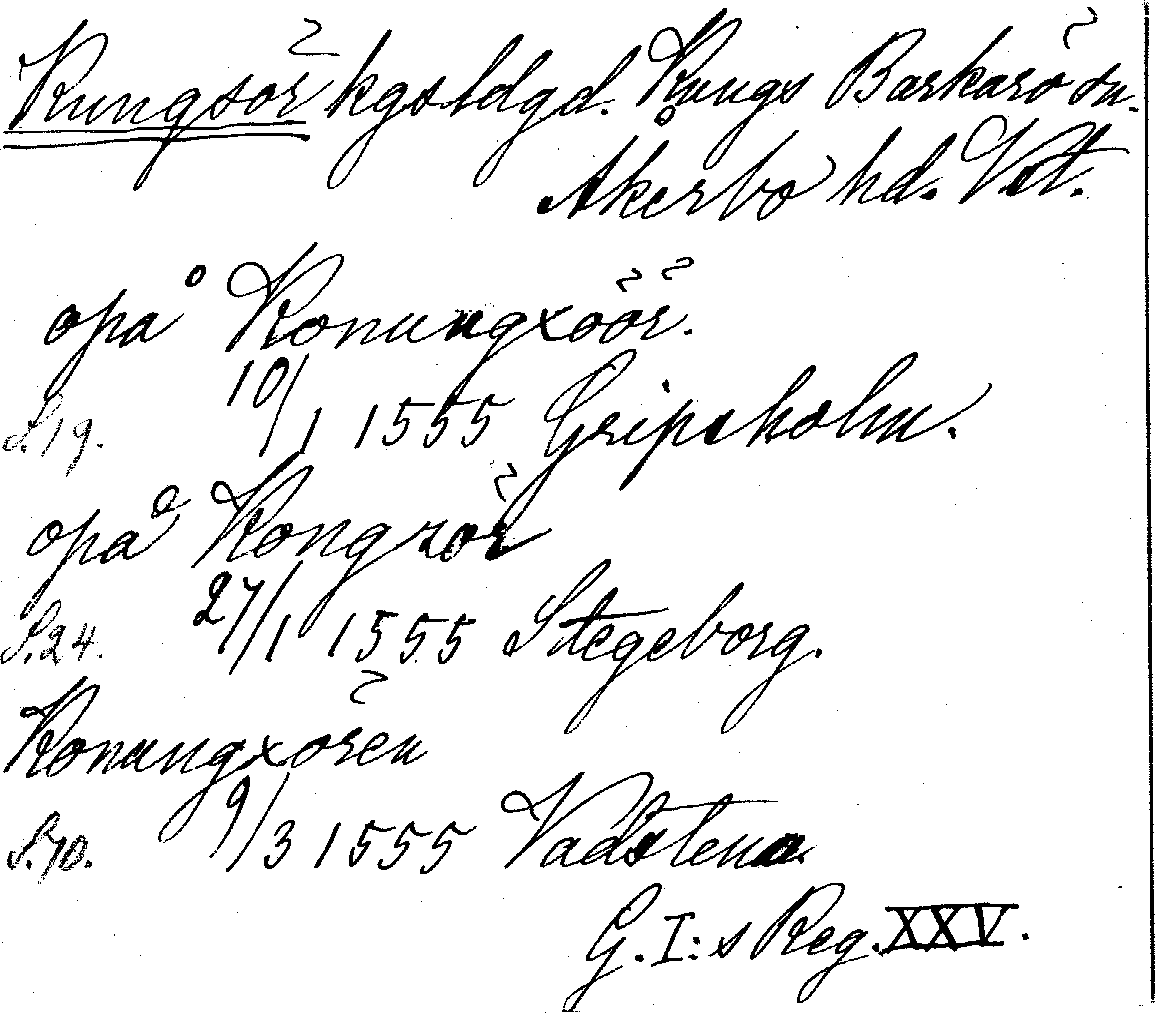 Kungsör kgsldgd. Kungs Barkarö sn.
Åkerbo hd. Vstm.
opå Konungxöör.
S. 19. 10/1 1555 Gripsholm.
opå Kongzör
S. 24. 27/1 1555 Stegeborg.
Konungxören
S. 70. 9/3 1555 Vadstena.
G. I:s Reg. XXV.